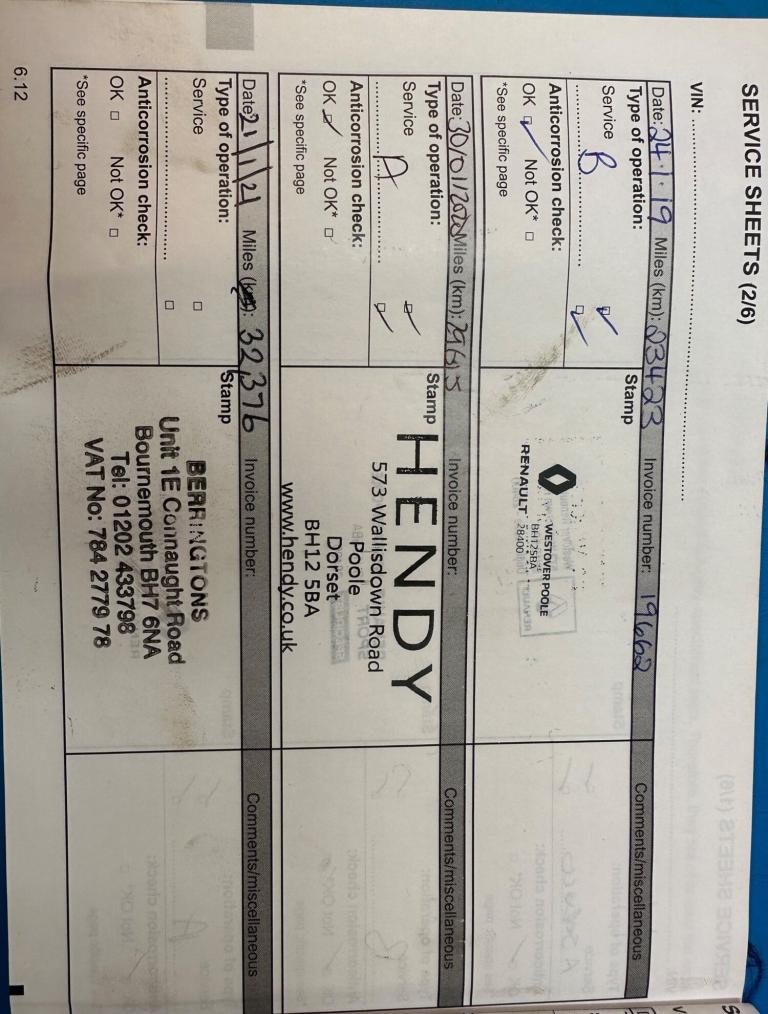 SERVICE SHEETS (2/6)
VIN:
Date: 24.1.19 Miles (km): 23423 Invoice number: 19662 Comments/miscellaneous
Type of operation: Stamp
Service ☑
B ☑
Anticorrosion check:
OK ☑ Not OK* □
*See specific page
RENAULT
WESTOVER POOLE
BH125BA
28400
Date: 30/01/2020 Miles (km): Invoice number: Comments/miscellaneous
Type of operation: Stamp
Service ☑
A ☑
Anticorrosion check:
OK ☑ Not OK* □
*See specific page
HENDY
573 Wallisdown Road
Poole
Dorset
BH12 5BA
www.hendy.co.uk
Date: 21/1/21 Miles (km): 32,376 Invoice number: Comments/miscellaneous
Type of operation: Stamp
Service □
□
Anticorrosion check:
OK □ Not OK* □
*See specific page
BERRINGTONS
Unit 1E Connaught Road
Bournemouth BH7 6NA
Tel: 01202 433798
VAT No: 784 2779 78
6.12